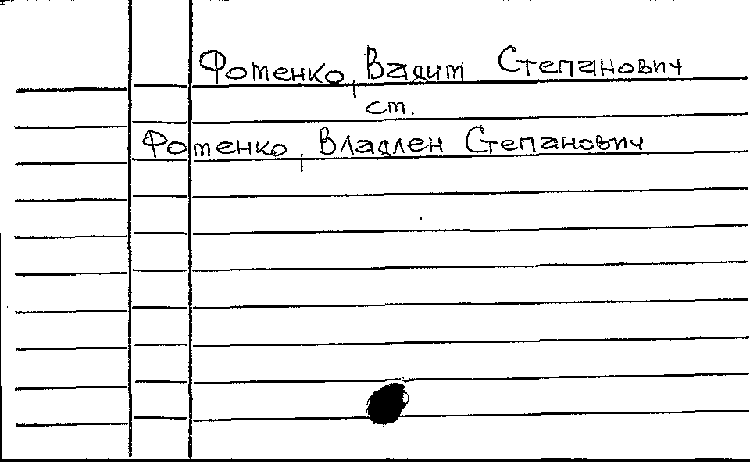 Фотенко, Вадим Степанович
ст.
Фотенко, Владлен Степанович